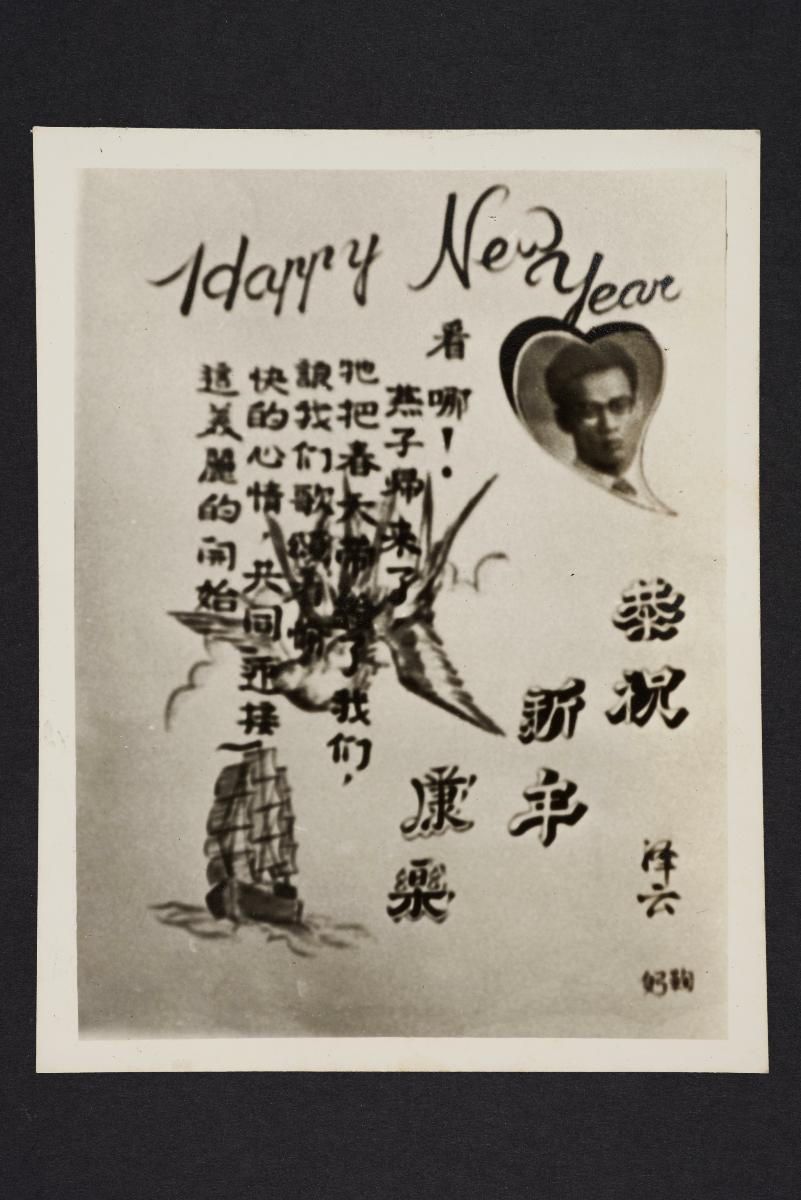 Happy New Year
看哪!
燕子帰来了
牠把春天帶給了我们,
讓我们歌頌着愉
快的心情,共同迎接
這美麗的開始
恭祝
新年
康樂
泽云
鞠